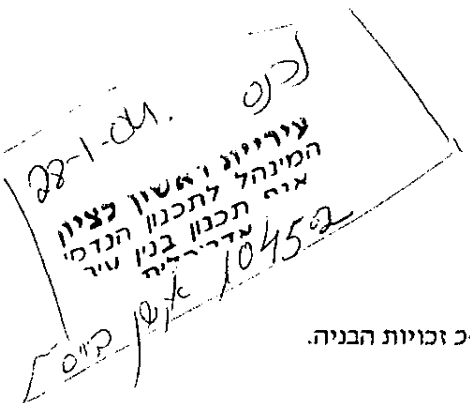 נכנס
28-1-04.
עיריית ראשון לציון
המינהל לתכנון הנדסי
אגף תכנון בנין עיר
10452
כ זכויות הבניה.